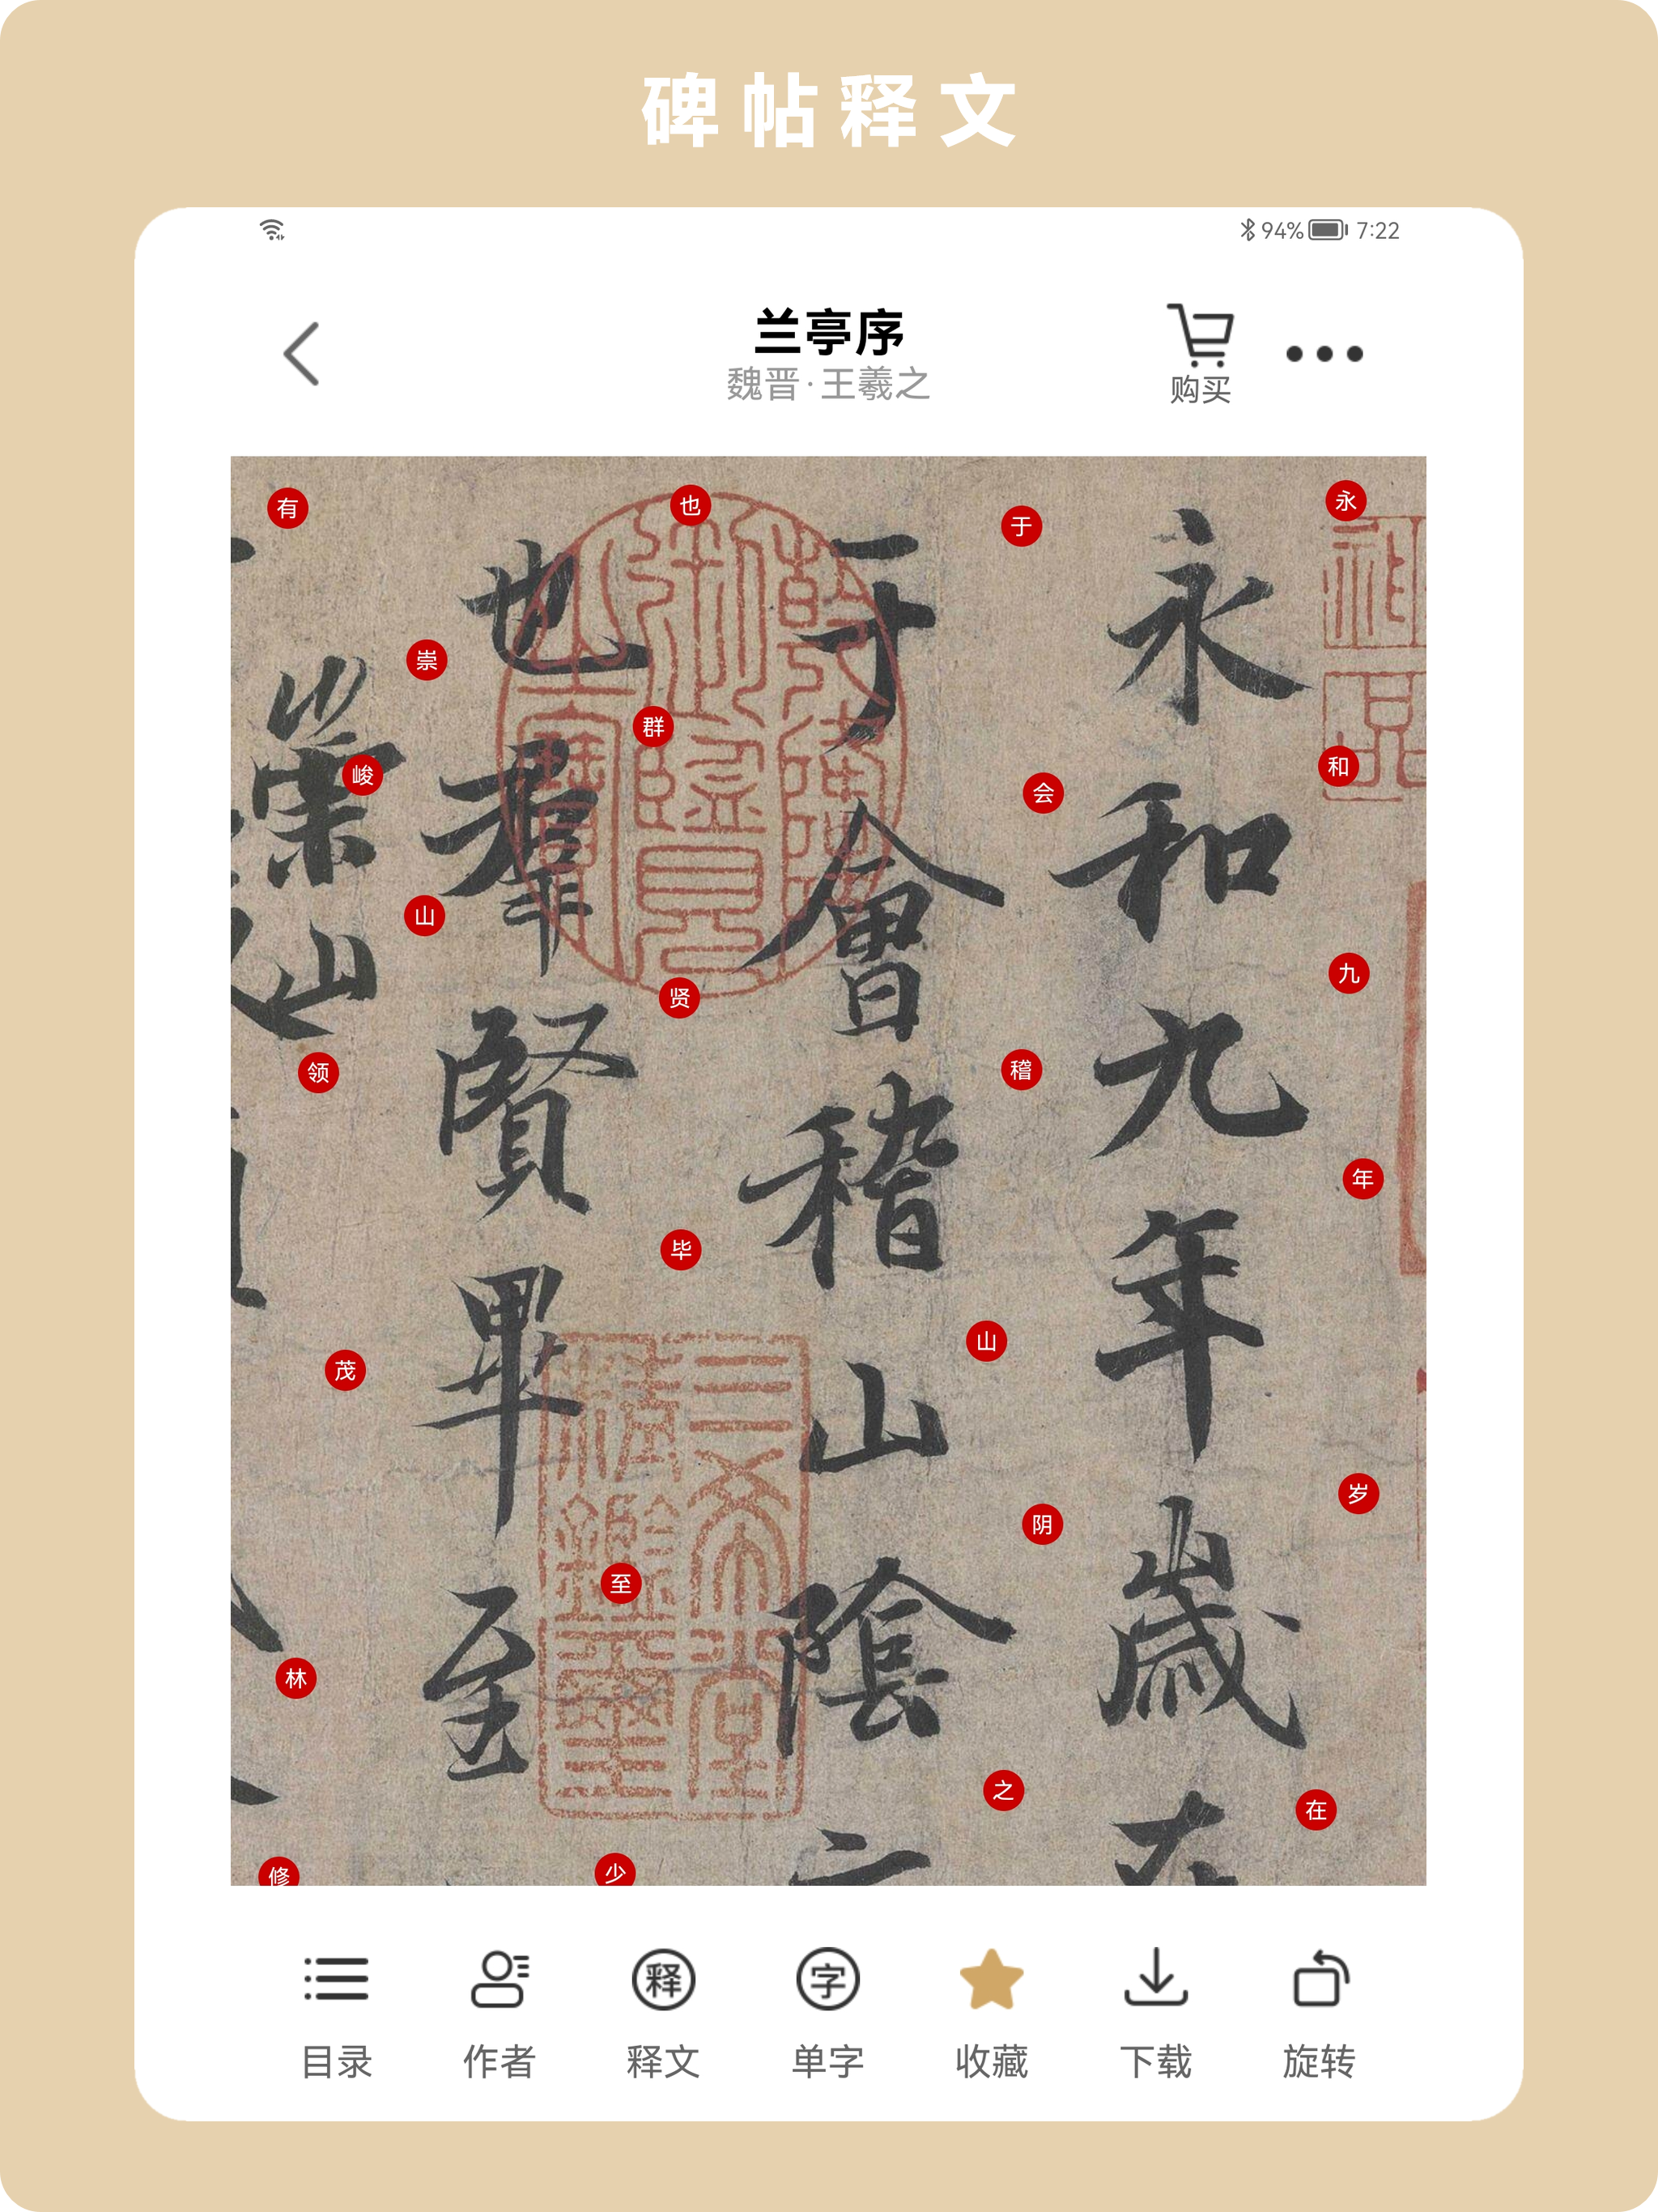 碑帖释文
94% 7:22
兰亭序
魏晋·王羲之
购买
永和九年歲在
永和九年岁在
于會稽山陰之
于会稽山阴之
也羣賢畢至
也群贤毕至少
崇山
有崇山峻领茂林修
目录
作者
释文
单字
收藏
下载
旋转